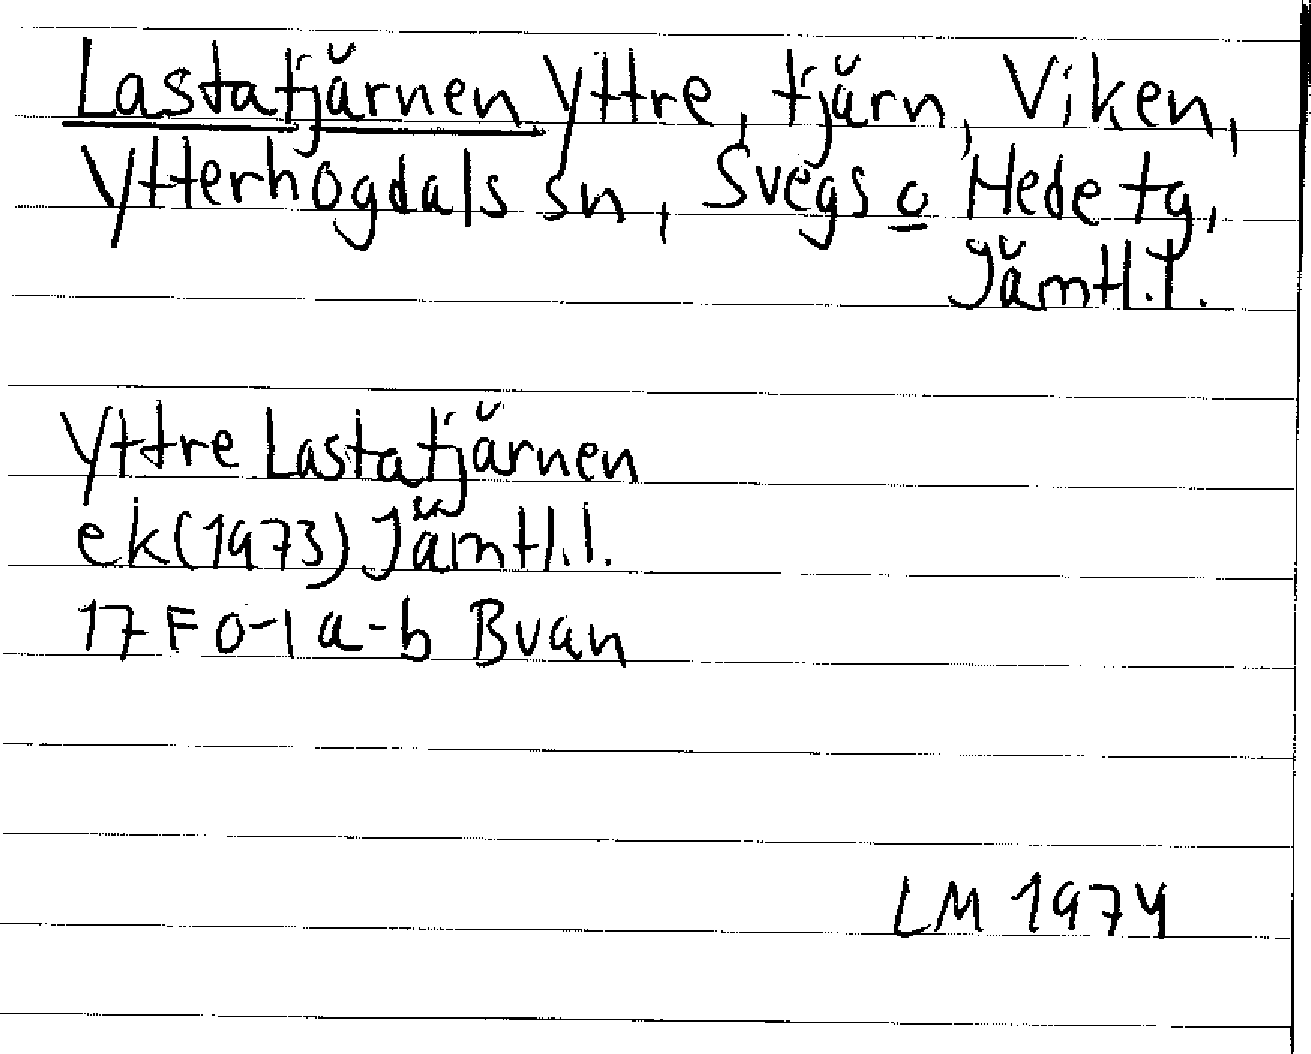 Lastatjärnen Yttre, tjärn, Viken,
Ytterhogdals sn, Svegs o Hede tg,
Jämtl.l.
Yttre Lastatjärnen
ek(1973) Jämtl.l.
17F 0-1 a-b Bvan
LM 1974